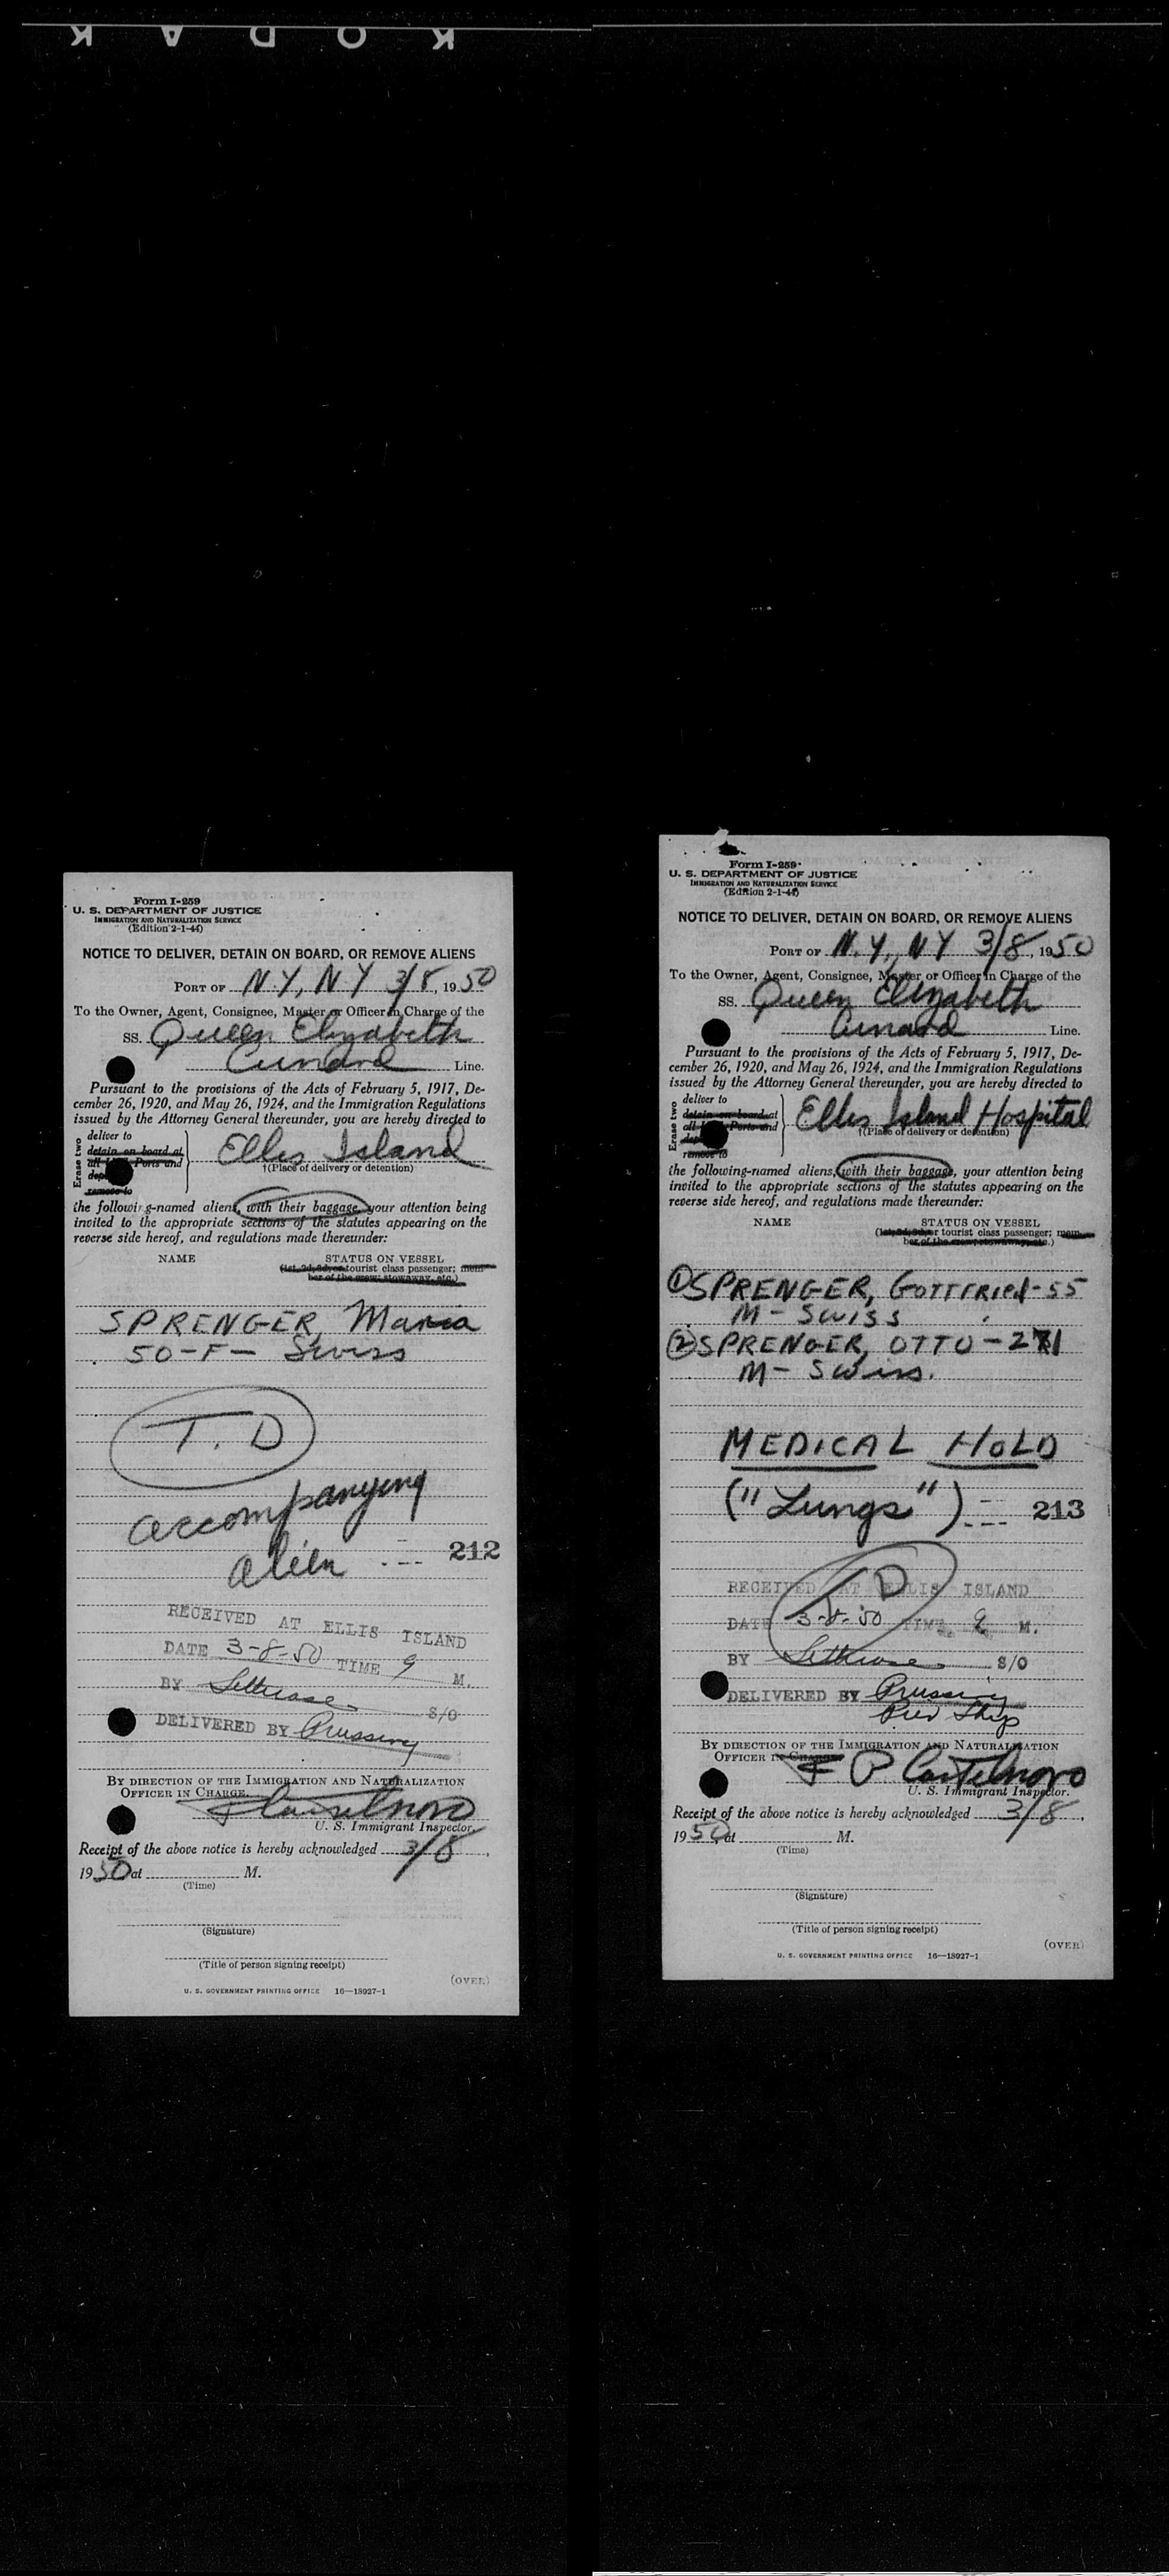 KODAK
Form I-259
U. S. DEPARTMENT OF JUSTICE
IMMIGRATION AND NATURALIZATION SERVICE
(Edition 2-1-44)
NOTICE TO DELIVER, DETAIN ON BOARD, OR REMOVE ALIENS
PORT OF N.Y., NY 3/8, 1950
To the Owner, Agent, Consignee, Master or Officer in Charge of the
SS. Queen Elizabeth
Cunard Line.
Pursuant to the provisions of the Acts of February 5, 1917, De-
cember 26, 1920, and May 26, 1924, and the Immigration Regulations
issued by the Attorney General thereunder, you are hereby directed to
Erase two
deliver to
detain on board at
all Ports and
remove to
Ellis Island
†(Place of delivery or detention)
the following-named aliens, with their baggage, your attention being
invited to the appropriate sections of the statutes appearing on the
reverse side hereof, and regulations made thereunder:
NAME STATUS ON VESSEL
(1st, 2d, 3d, or tourist class passenger; mem-
ber of the crew; stowaway, etc.)
SPRENGER, Maria
50-F- Swiss
T.D
accompanying
alien --- 212
RECEIVED AT ELLIS ISLAND
DATE 3-8-50 TIME 9 M.
BY S/O
DELIVERED BY Prussing
BY DIRECTION OF THE IMMIGRATION AND NATURALIZATION
OFFICER IN CHARGE.
F Castelnovo
U. S. Immigrant Inspector.
Receipt of the above notice is hereby acknowledged 3/8,
1950 at M.
(Time)
(Signature)
(Title of person signing receipt)
(OVER)
U. S. GOVERNMENT PRINTING OFFICE 16—18927-1
Form I-259
U. S. DEPARTMENT OF JUSTICE
IMMIGRATION AND NATURALIZATION SERVICE
(Edition 2-1-44)
NOTICE TO DELIVER, DETAIN ON BOARD, OR REMOVE ALIENS
PORT OF N.Y., NY 3/8, 1950
To the Owner, Agent, Consignee, Master or Officer in Charge of the
SS. Queen Elizabeth
Cunard Line.
Pursuant to the provisions of the Acts of February 5, 1917, De-
cember 26, 1920, and May 26, 1924, and the Immigration Regulations
issued by the Attorney General thereunder, you are hereby directed to
Erase two
deliver to
detain on board at
all Ports and
remove to
Ellis Island Hospital
†(Place of delivery or detention)
the following-named aliens, with their baggage, your attention being
invited to the appropriate sections of the statutes appearing on the
reverse side hereof, and regulations made thereunder:
NAME STATUS ON VESSEL
(1st, 2d, 3d, or tourist class passenger; mem-
ber of the crew; stowaway, etc.)
① SPRENGER, GOTTFRIED-55
M- SWISS
② SPRENGER, OTTO-21
M- Swiss.
MEDICAL HOLD
("Lungs") --- 213
T.D
RECEIVED AT ELLIS ISLAND
DATE 3-8-50 TIME 9 M.
BY S/O
DELIVERED BY Prussing
Pier Ship
BY DIRECTION OF THE IMMIGRATION AND NATURALIZATION
OFFICER IN CHARGE
F P Castelnovo
U. S. Immigrant Inspector.
Receipt of the above notice is hereby acknowledged 3/8,
1950, at M.
(Time)
(Signature)
(Title of person signing receipt)
(OVER)
U. S. GOVERNMENT PRINTING OFFICE 16—18927-1